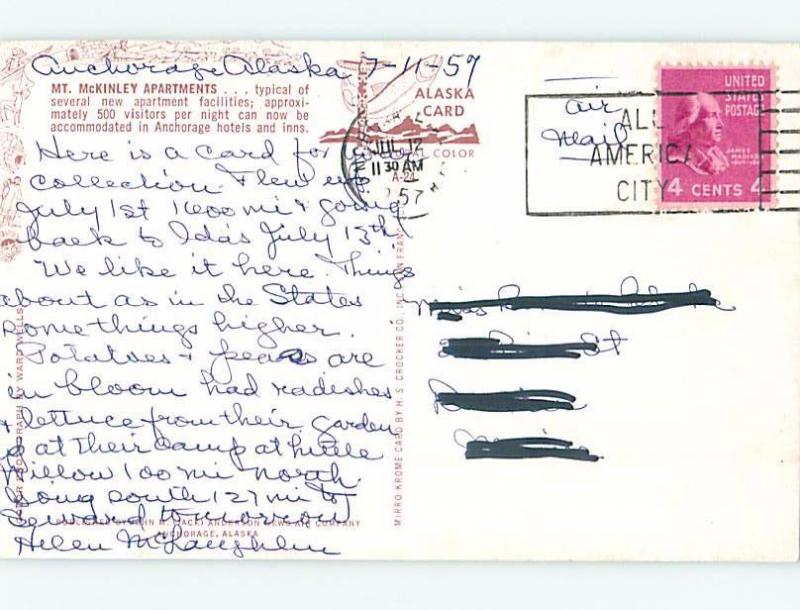 Anchorage Alaska 7-11-57
MT. McKINLEY APARTMENTS . . . typical of
several new apartment facilities; approxi-
mately 500 visitors per night can now be
accommodated in Anchorage hotels and inns.
ALASKA
CARD
COLOR
A-24
Here is a card for your
collection. Flew up
July 1st 1600 mi & going
back to Ida's July 13th.
We like it here. Things
about as in the States
some things higher.
Potatoes & peas are
in bloom had radishes
& lettuce from their garden
at their camp at
Willow 100 mi north.
Going south 127 mi to
Seward tomorrow
Helen McLaughlin
ANCHORAGE, ALASKA
MIRRO KROME CARD BY H. S. CROCKER CO., INC. SAN FRAN
PHOTOGRAPH BY WARD WELLS
JUL 12
11 30 AM
57
Air
Mail
ALL
AMERICA
CITY
UNITED
STATES
POSTAGE
JAMES
MADISON
4 CENTS 4
St